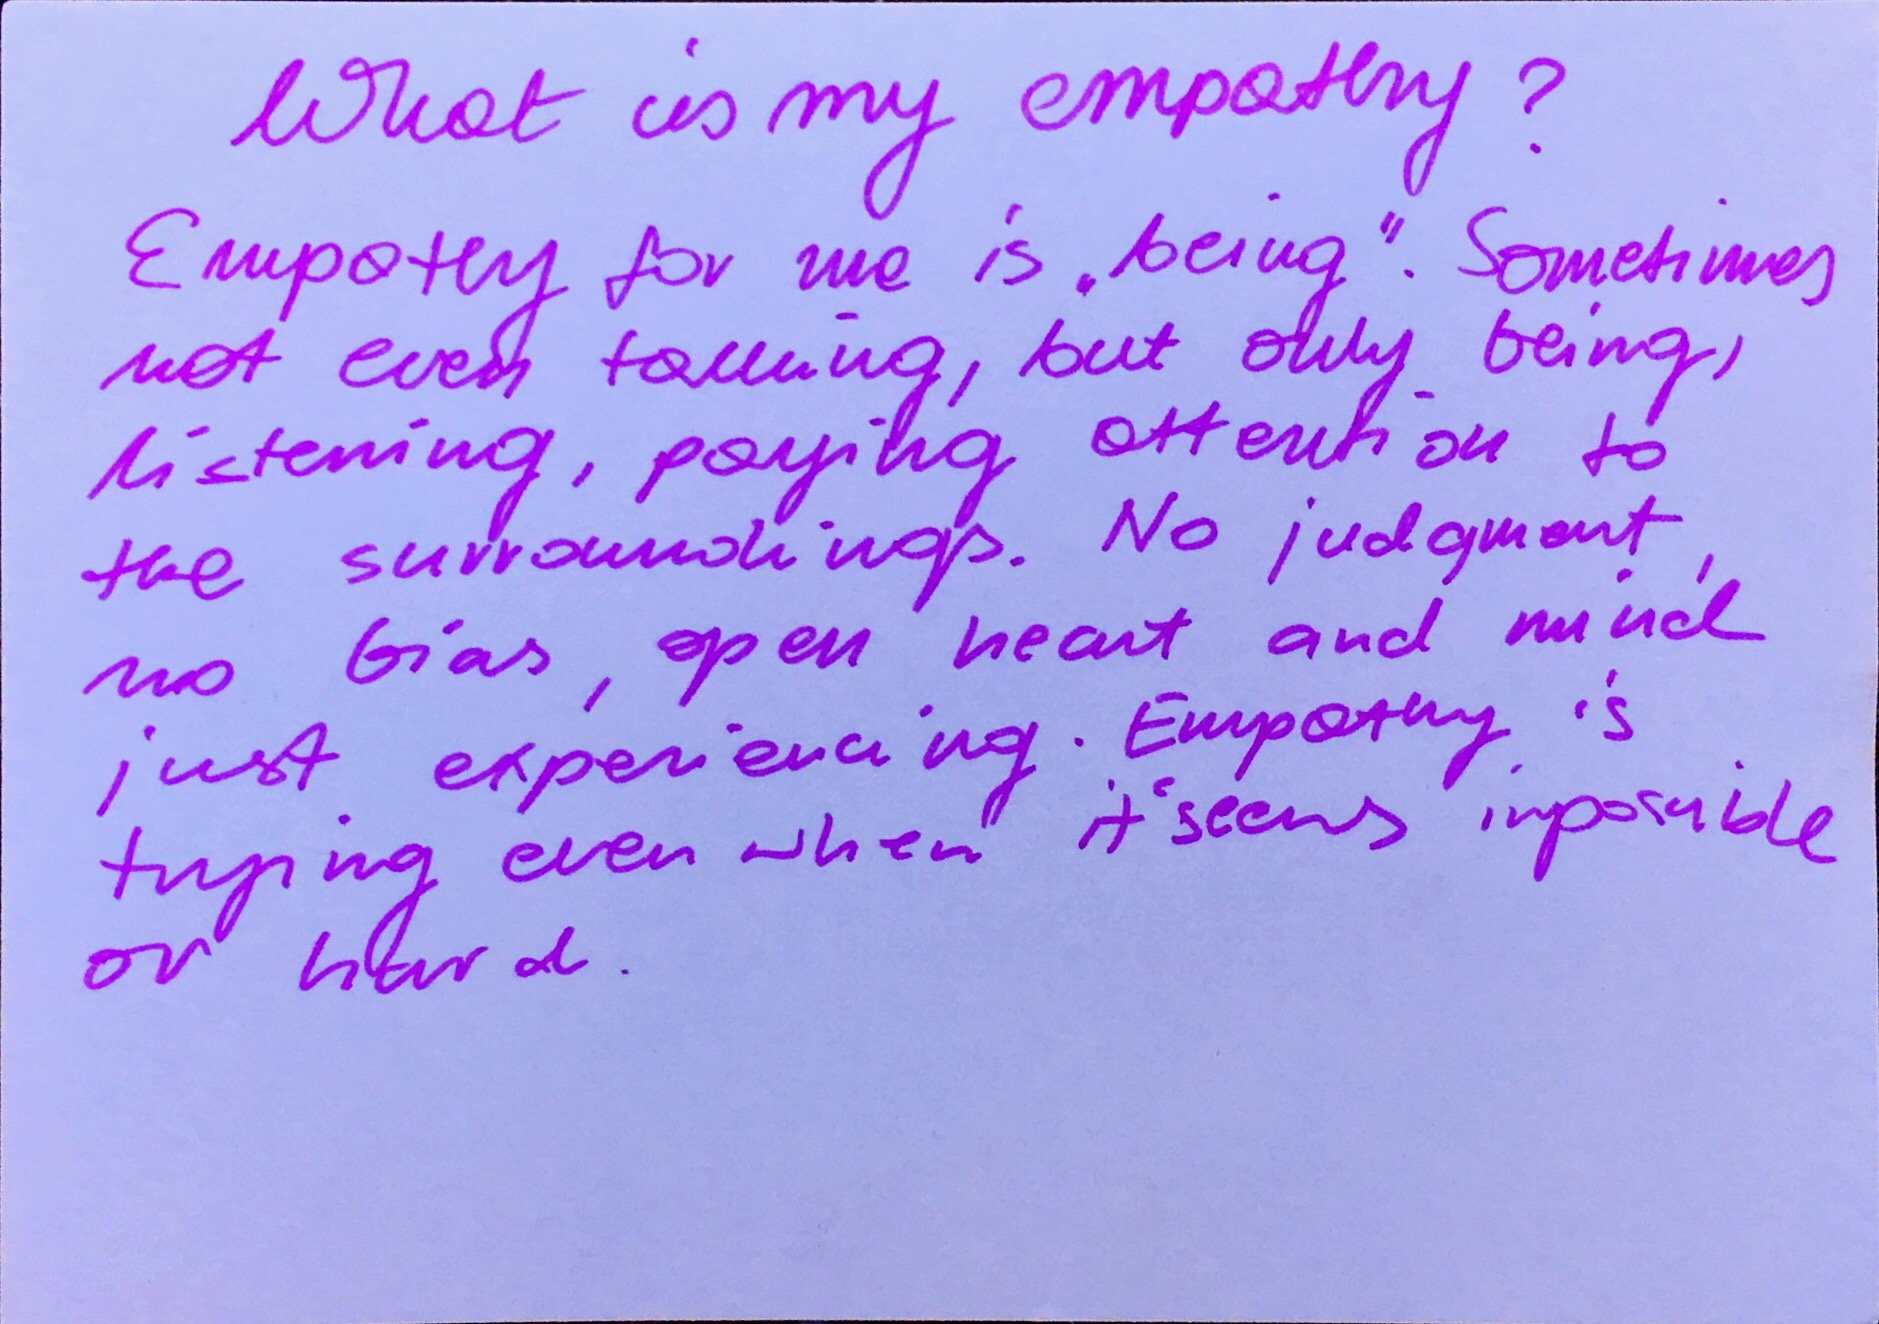 What is my empathy?
Empathy for me is „being". Sometimes
not even talking, but only being,
listening, paying attention to
the surroundings. No judgment,
no bias, open heart and mind
just experiencing. Empathy is
trying even when it seems impossible
or hard.